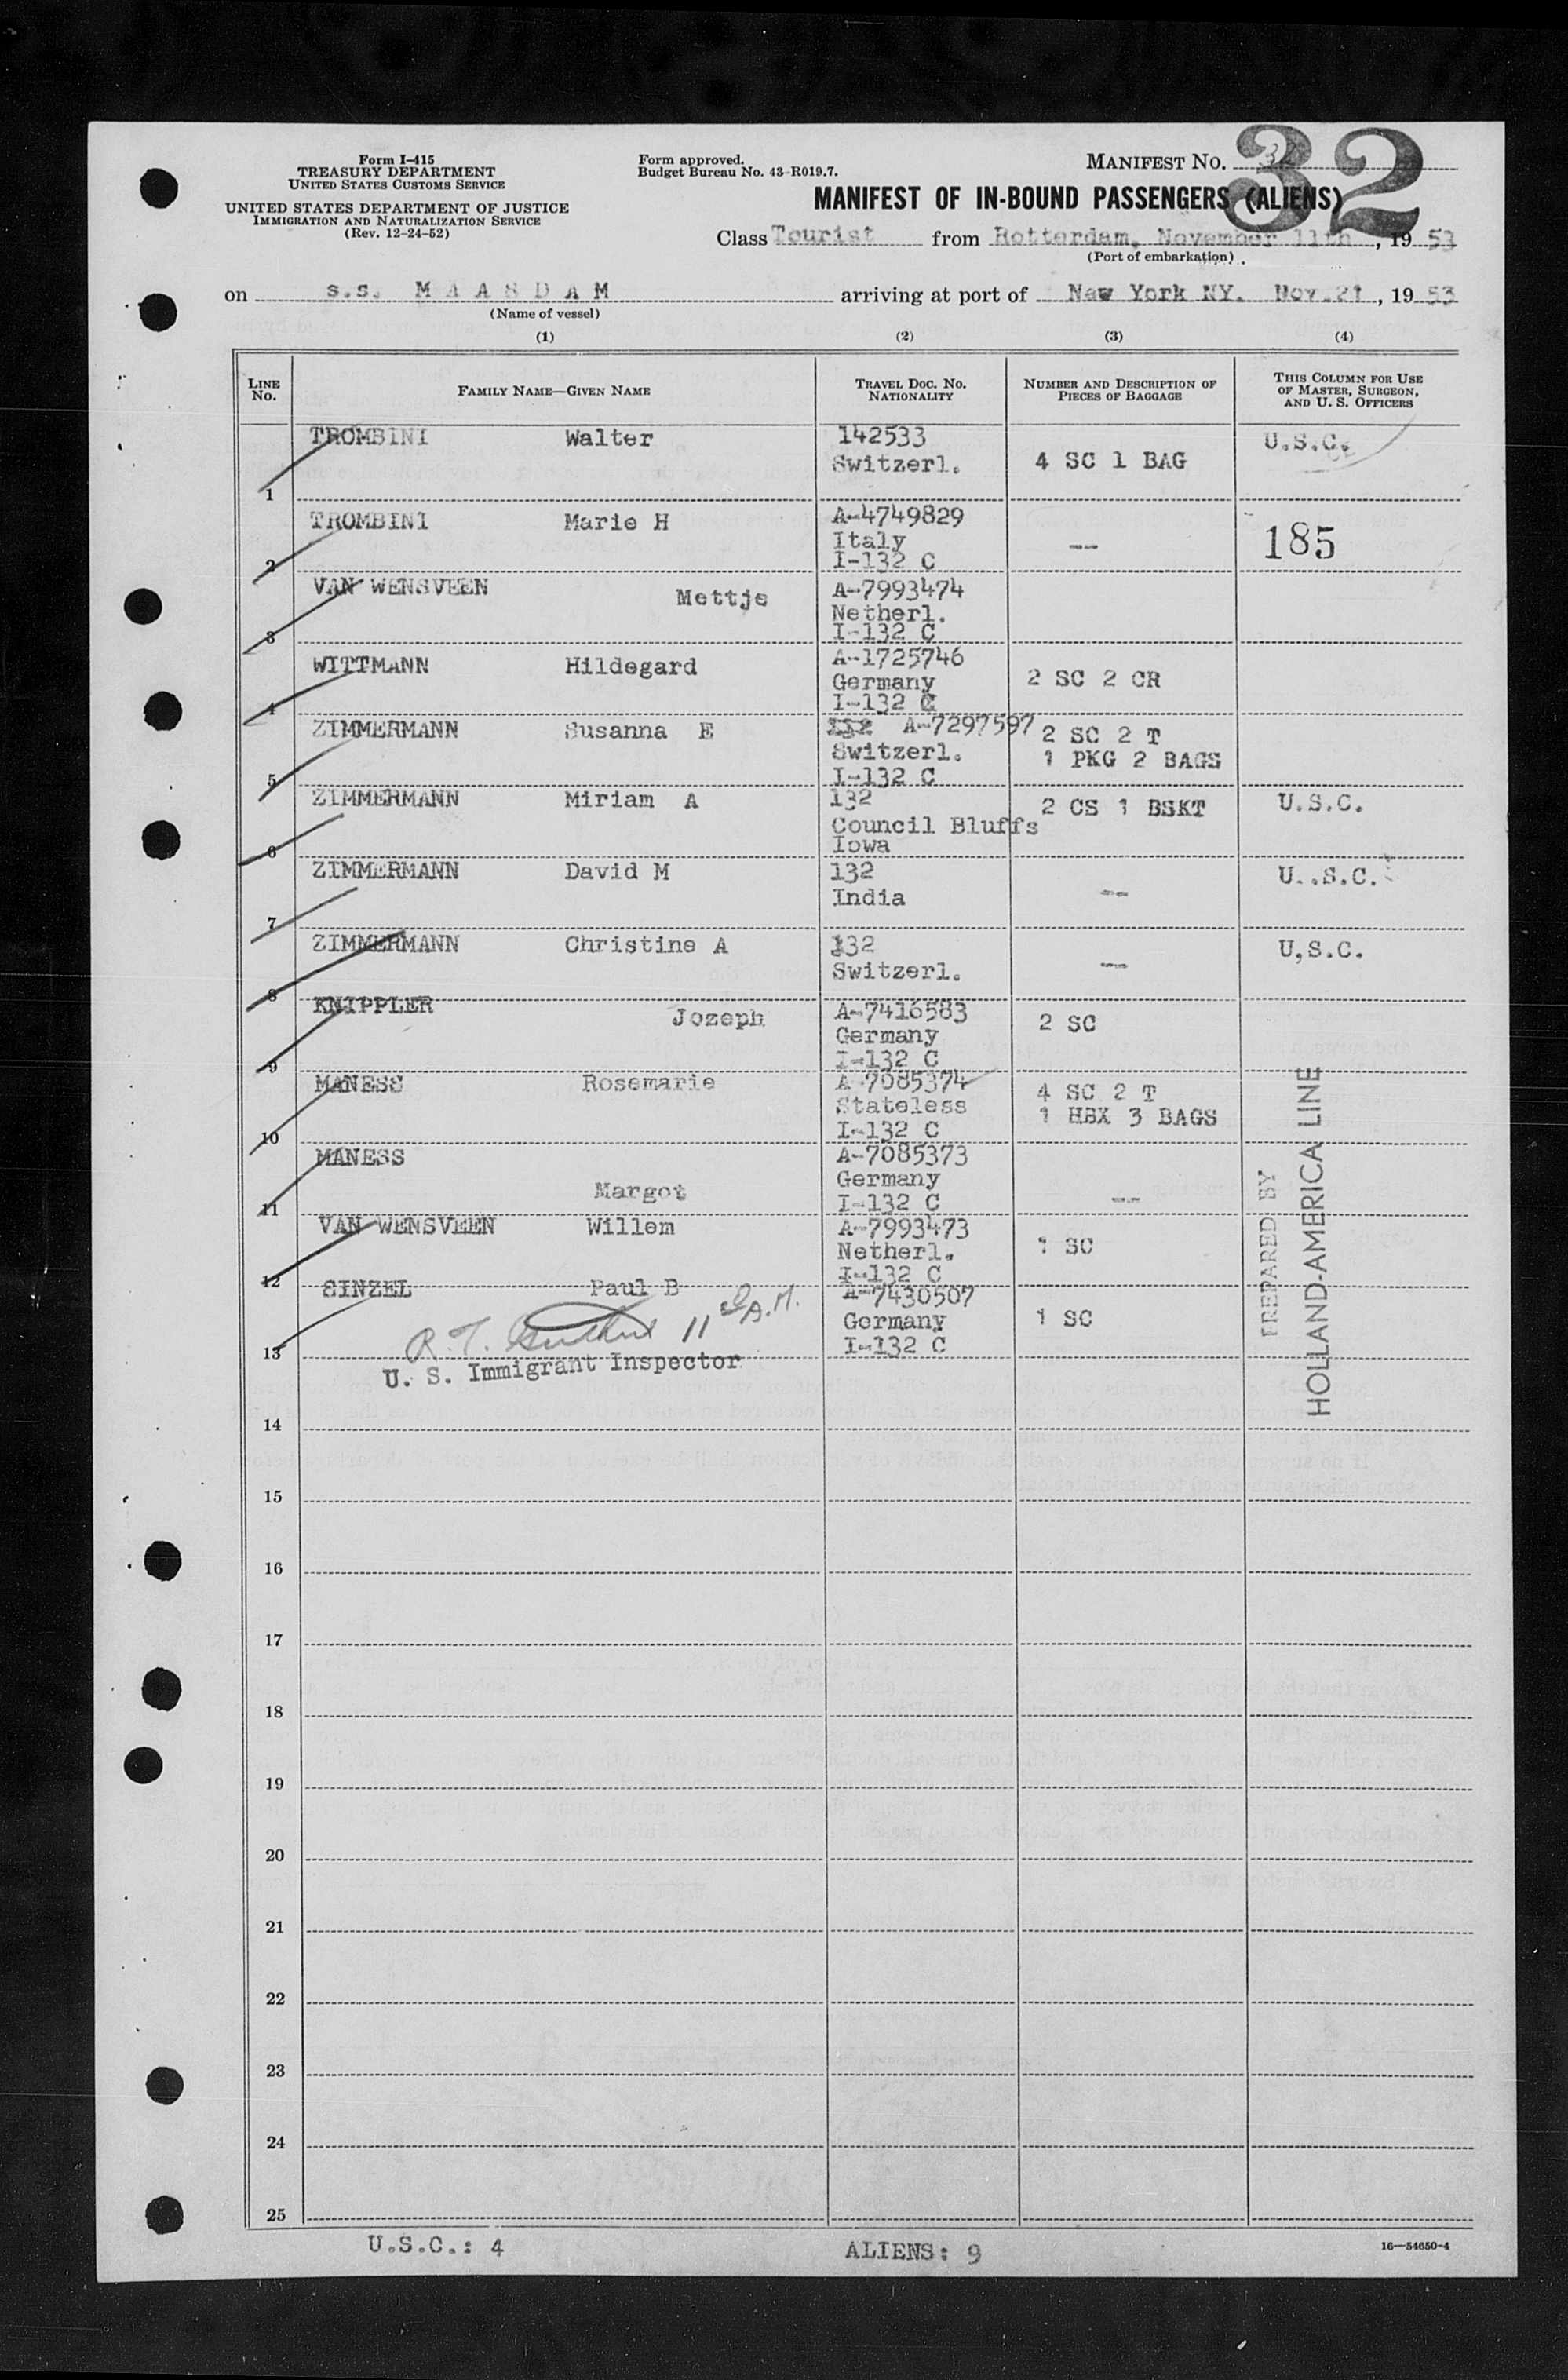 Form I-415
TREASURY DEPARTMENT
UNITED STATES CUSTOMS SERVICE
UNITED STATES DEPARTMENT OF JUSTICE
IMMIGRATION AND NATURALIZATION SERVICE
(Rev. 12-24-52)
Form approved.
Budget Bureau No. 43-R019.7.
MANIFEST NO. 32
32
MANIFEST OF IN-BOUND PASSENGERS (ALIENS)
Class Tourist from Rotterdam, November 11th, 19 53
(Port of embarkation)
on s.s. M A A S D A M arriving at port of New York NY. Nov.21, 19 53
(Name of vessel)
(1) (2) (3) (4)
LINE No. FAMILY NAME—GIVEN NAME TRAVEL DOC. NO. NATIONALITY NUMBER AND DESCRIPTION OF PIECES OF BAGGAGE THIS COLUMN FOR USE OF MASTER, SURGEON, AND U. S. OFFICERS
1 TROMBINI Walter 142533 Switzerl. 4 SC 1 BAG U.S.C.
2 TROMBINI Marie H A-4749829 Italy I-132 C -- 185
3 VAN WENSVEEN Mettje A-7993474 Netherl. I-132 C
4 WITTMANN Hildegard A-1725746 Germany I-132 C 2 SC 2 CR
5 ZIMMERMANN Susanna E A-7297597 Switzerl. I-132 C 2 SC 2 T 1 PKG 2 BAGS
6 ZIMMERMANN Miriam A 132 Council Bluffs Iowa 2 CS 1 BSKT U.S.C.
7 ZIMMERMANN David M 132 India -- U..S.C.
8 ZIMMERMANN Christine A 132 Switzerl. -- U,S.C.
9 KNIPPLER Jozeph A-7416583 Germany I-132 C 2 SC
10 MANESS Rosemarie A-7085374 Stateless I-132 C 4 SC 2 T 1 HBX 3 BAGS
11 MANESS Margot A-7085373 Germany I-132 C --
12 VAN WENSVEEN Willem A-7993473 Netherl. I-132 C 1 SC
13 SINZEL Paul B A-7430507 Germany I-132 C 1 SC
R.T. 11 A.M.
U. S. Immigrant Inspector
PREPARED BY
HOLLAND-AMERICA LINE
14
15
16
17
18
19
20
21
22
23
24
25
U.S.C.: 4 ALIENS: 9
16—54650-4